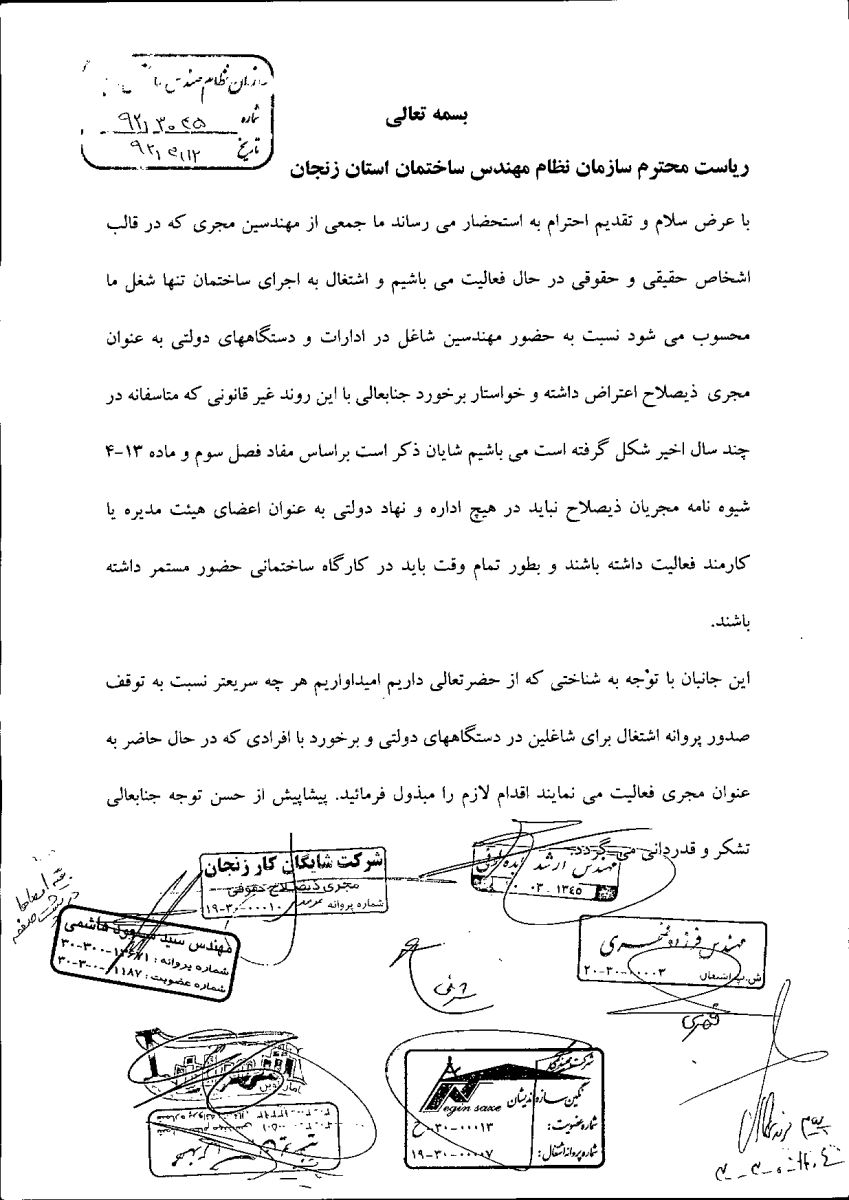 سازمان نظام مهندسی
شماره ۹۲/۳۰۴۵
تاریخ
بسمه تعالی
ریاست محترم سازمان نظام مهندس ساختمان استان زنجان
با عرض سلام و تقدیم احترام به استحضار می رساند ما جمعی از مهندسین مجری که در قالب
اشخاص حقیقی و حقوقی در حال فعالیت می باشیم و اشتغال به اجرای ساختمان تنها شغل ما
محسوب می شود نسبت به حضور مهندسین شاغل در ادارات و دستگاههای دولتی به عنوان
مجری ذیصلاح اعتراض داشته و خواستار برخورد جنابعالی با این روند غیر قانونی که متاسفانه در
چند سال اخیر شکل گرفته است می باشیم شایان ذکر است براساس مفاد فصل سوم و ماده ۱۳-۴
شیوه نامه مجریان ذیصلاح نباید در هیچ اداره و نهاد دولتی به عنوان اعضای هیئت مدیره یا
کارمند فعالیت داشته باشند و بطور تمام وقت باید در کارگاه ساختمانی حضور مستمر داشته
باشند.
این جانبان با توجه به شناختی که از حضرتعالی داریم امیداواریم هر چه سریعتر نسبت به توقف
صدور پروانه اشتغال برای شاغلین در دستگاههای دولتی و برخورد با افرادی که در حال حاضر به
عنوان مجری فعالیت می نمایند اقدام لازم را مبذول فرمائید. پیشاپیش از حسن توجه جنابعالی
تشکر و قدردانی می گردد.
مهندس ارشد
۰۳۰۱۳۴۵
شرکت شایگان کار زنجان
مجری ذیصلاح حقوقی
شماره پروانه ۱۹-۳۰-۰۰۰۱۰
بقیه امضاها
در پشت صفحه
مهندس سید مسعود هاشمی
شماره پروانه : ۳۰-۳۰۰-
شماره عضویت : ۳۰-۳-۰-۱۱۸۷
مهندس فرزاد
ش.پ.اشتغال ۲۰-۳۰-۰۰۰۰۳
شرکت مهندسی
نگین سازه اندیشان
Negin saze
شماره عضویت: ۳۰-۰۰۰۱۳-ح
شماره پروانه اشتغال: ۱۹-۳۰-۰۰۰۰۷